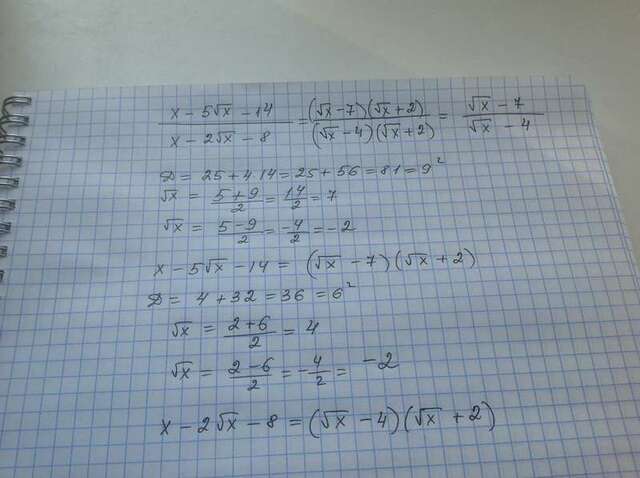 (x - 5√x - 14)/(x - 2√x - 8) = ((√x - 7)(√x + 2))/((√x - 4)(√x + 2)) = (√x - 7)/(√x - 4)
D = 25 + 4·14 = 25 + 56 = 81 = 9²
√x = (5 + 9)/2 = 14/2 = 7
√x = (5 - 9)/2 = -4/2 = -2
x - 5√x - 14 = (√x - 7)(√x + 2)
D = 4 + 32 = 36 = 6²
√x = (2 + 6)/2 = 4
√x = (2 - 6)/2 = -4/2 = -2
x - 2√x - 8 = (√x - 4)(√x + 2)